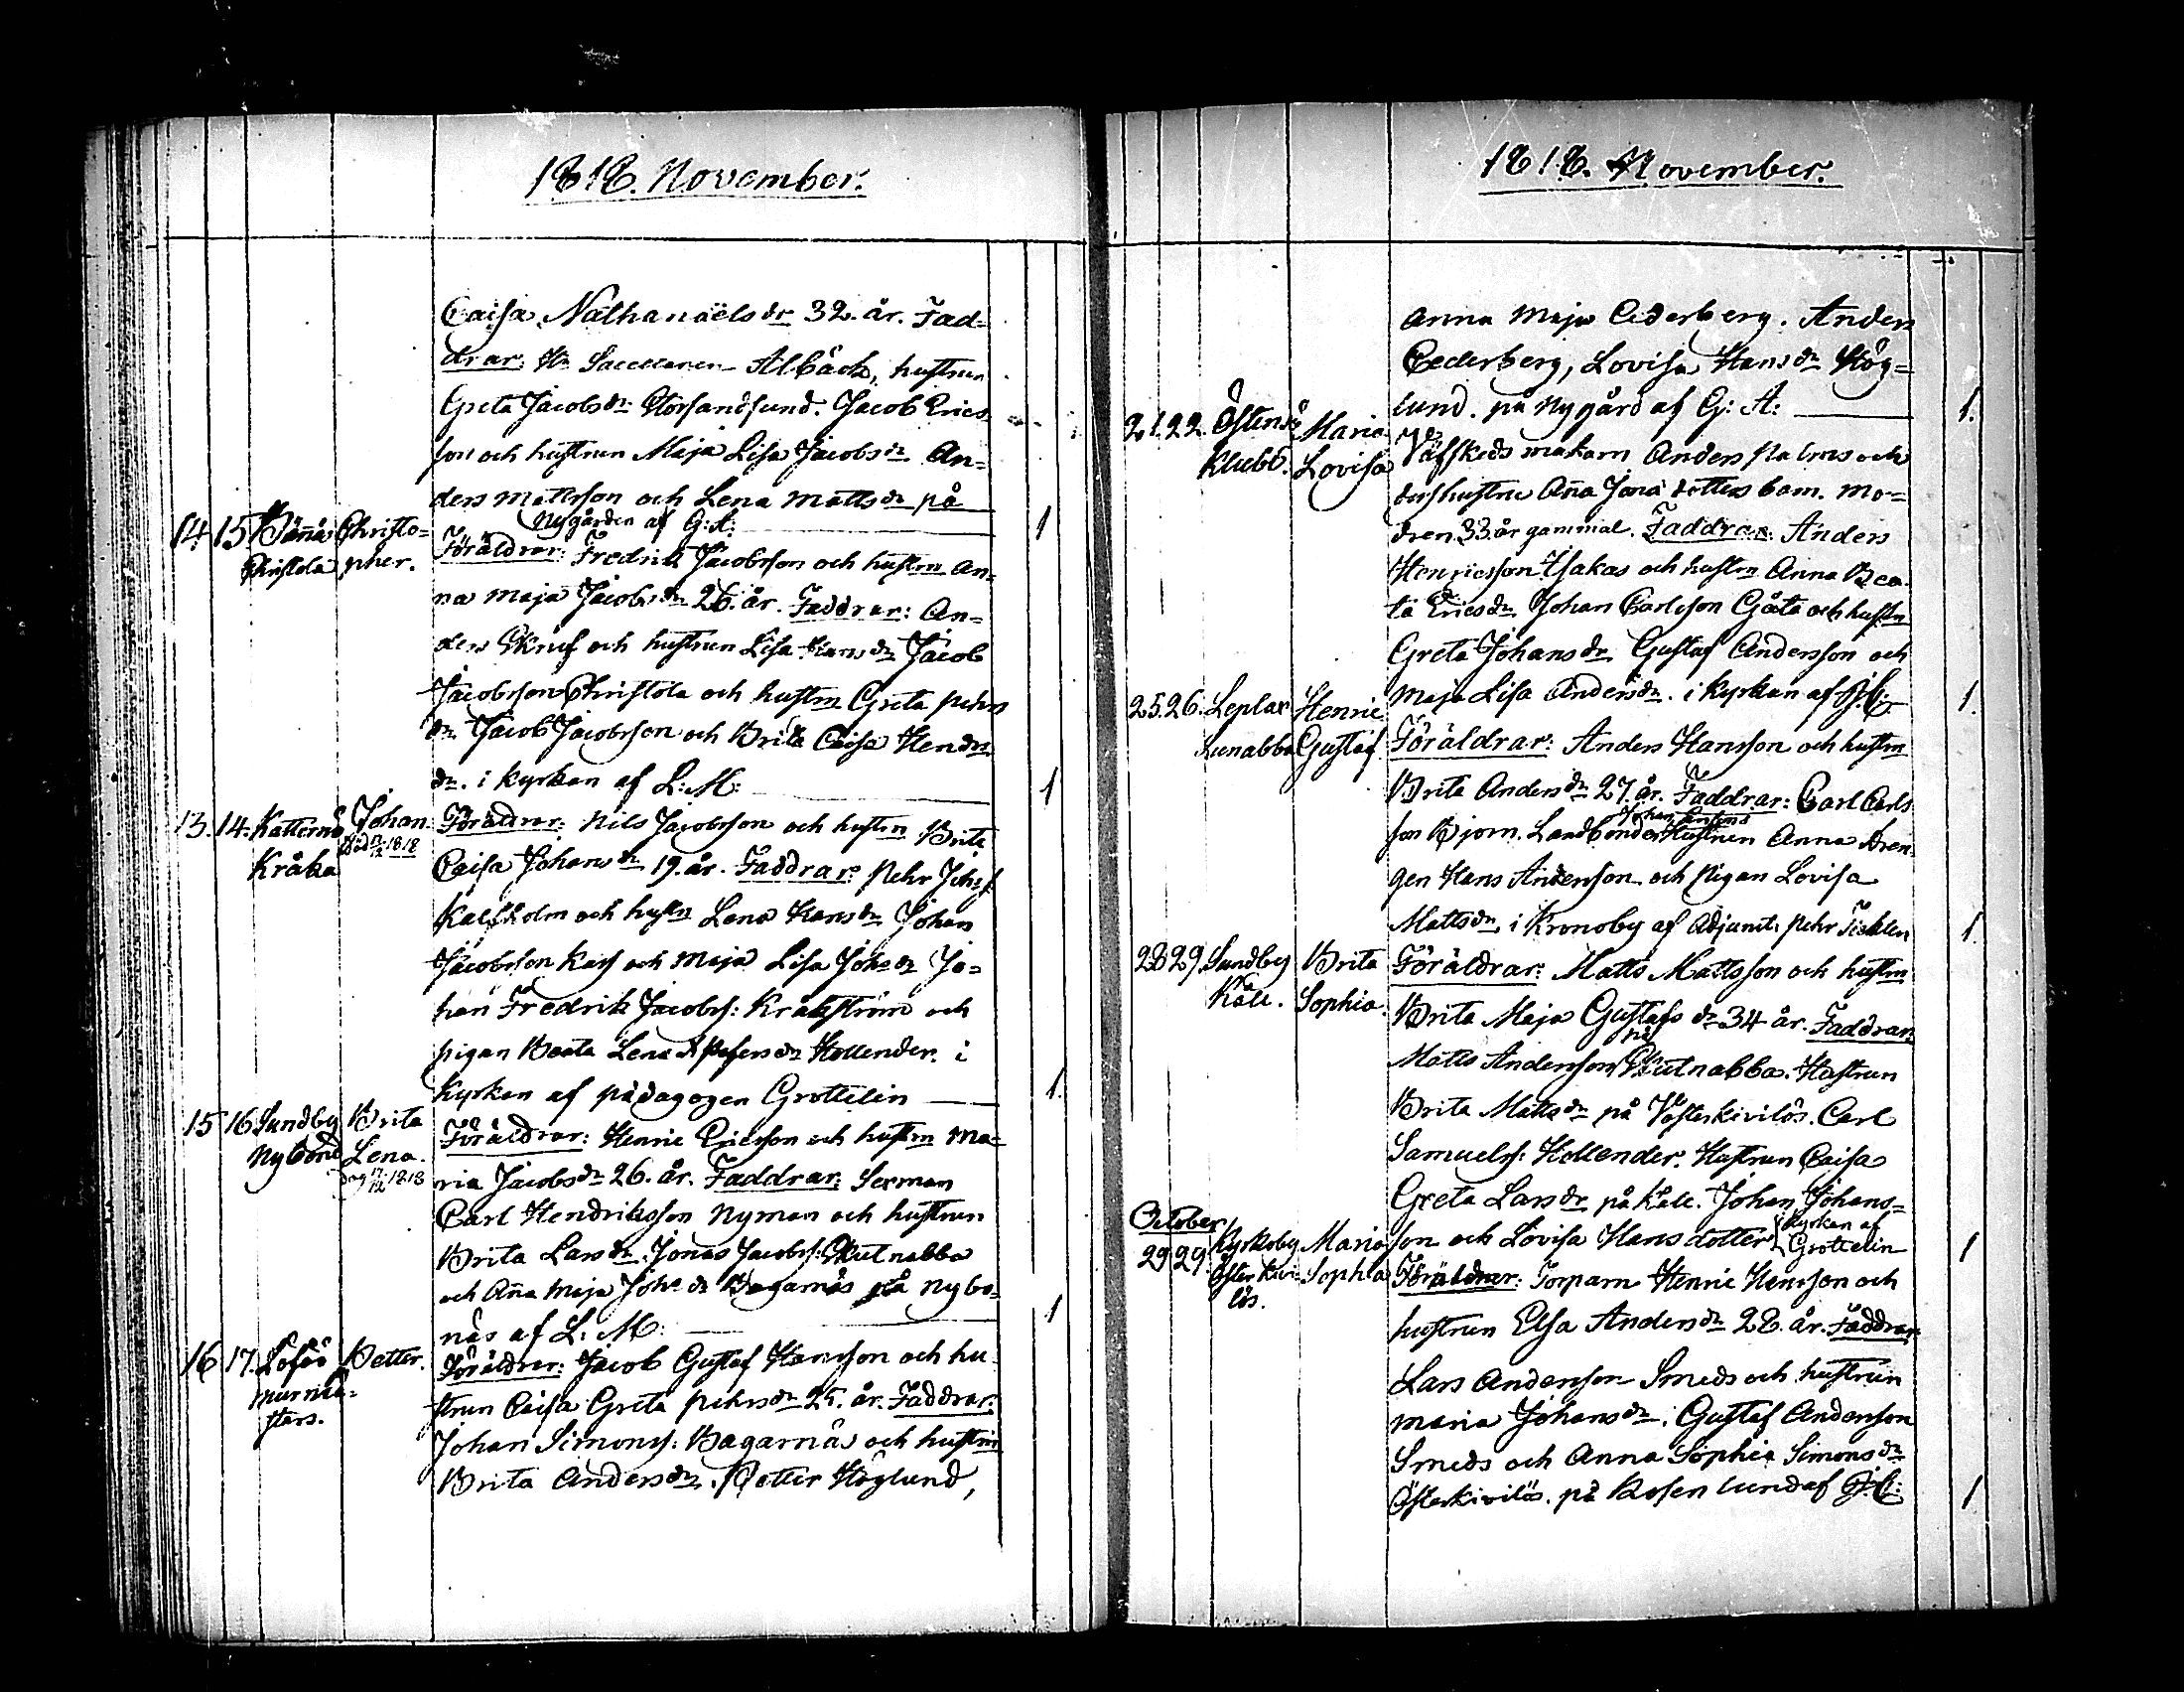 1818. November.
Caisa Nathanaëls dr 32. år. Fad-
drar: Hr Sacellanen Albäck, hustrun
Greta Jacobs dr Storsandsund. Jacob Erics
son och hustrun Maja Lisa Jacobs dr An-
ders Mattsson och Lena Matts dr på
Nygården af G: A: 1
14. 15. Christo-
pher.
Föräldrar: Fredrik Jacobsson och hustrn An-
na Maja Jacobs dr 26. år. Faddrar: An-
ders Skruf och hustrun Lisa Hans dr Jacob
Jacobsson och hustrn Greta Pehrs
dr Jacob Jacobsson och Brita Caisa Hendr.
dr. i kyrkan af L: M: 1
13. 14. Katternö Johan
Kråka 1818
Föräldrar: Nils Jacobsson och hustrn Brita
Caisa Johans dr 19. år. Faddrar: Pehr Johss
och hustrn Lena Hans dr Johan
Jacobsson Kass och Maja Lisa Johs dr Jo-
han Fredrik Jacobss: Kråkström och
pigan Beata Lena dr Kollender. i
Kyrkan af pädagogen Grottelin 1.
15 16 Sundby Brita
Nybond Lena.
17/12 1818
Föräldrar: Henric Ericsson och hustrn Ma-
ria Jacobs dr 26. år. Faddrar: Sexman
Carl Hendriksson Nyman och hustrun
Brita Lars dr. Jonas Jacobss: Skutnabba
och Aña Maja Johs dr Bagarnäs på Nybo-
näs af L: M: 1
16 17. Lösöö Petter.
murmä-
stars.
Föräldrar: Jacob Gustaf Hansson och hu-
strun Caisa Greta Pehrs dr 25. år. Faddrar:
Johan Simonss: Bagarnäs och hustrn
Brita Anders dr. Petter Höglund,
1818. November.
Anna Maja Cederberg. Anders
Cederberg, Lovisa Hans dr Hög-
lund. på Nygård af G: A: 1.
21. 22. Östensö Maria
Klubb. Lovisa
Väfskedsmakarn Anders Palms och
dess hustru Aña Jona dotters barn. Mo-
dren 33. år gammal. Faddrar: Anders
Henricsson Isakas och hustrn Anna Bea-
ta Erics dr Johan Carlsson Gäta och hustrn
Greta Johans dr Gustaf Andersson och
Maja Lisa Anders dr. i Kyrkan af J. C: 1.
25. 26. Leplax Henric
Sunabba Gustaf.
Föräldrar: Anders Hansson och hustrn
Brita Anders dr 27. år. Faddrar: Carl Carls
son Björn. Landbonden Johan Jansons Hustrun Anna Dren-
gen Hans Andersson och Pigan Lovisa
Matts dr, i Kronoby af Adjunct. Pehr Ticklén 1.
28 29. Sundby Brita
Kåll. Sophia.
Föräldrar: Matts Mattsson och hustrn
Brita Maja Gustafs dr 34 år. Faddrar:
Matts Andersson på Skutnabba. Hustrun
Brita Matts dr på Västerkivilös. Carl
Samuelss: Kollender. Hustrun Caisa
Greta Lars dr på Kåll. Johan Johans-
son och Lovisa Hansdotter Kyrkan af
Grottelin 1
October
29 29. Kyrkoby Maria
Österkivi- Sophia
lös.
Föräldrar: Torparn Henric Hansson och
hustrun Elsa Anders dr 28. år. Faddrar:
Lars Andersson Smeds och hustrun
Maria Johans dr. Gustaf Andersson
Smeds och Anna Sophia Simons dr
Österkivilös. på Rosenlund af J. C: 1